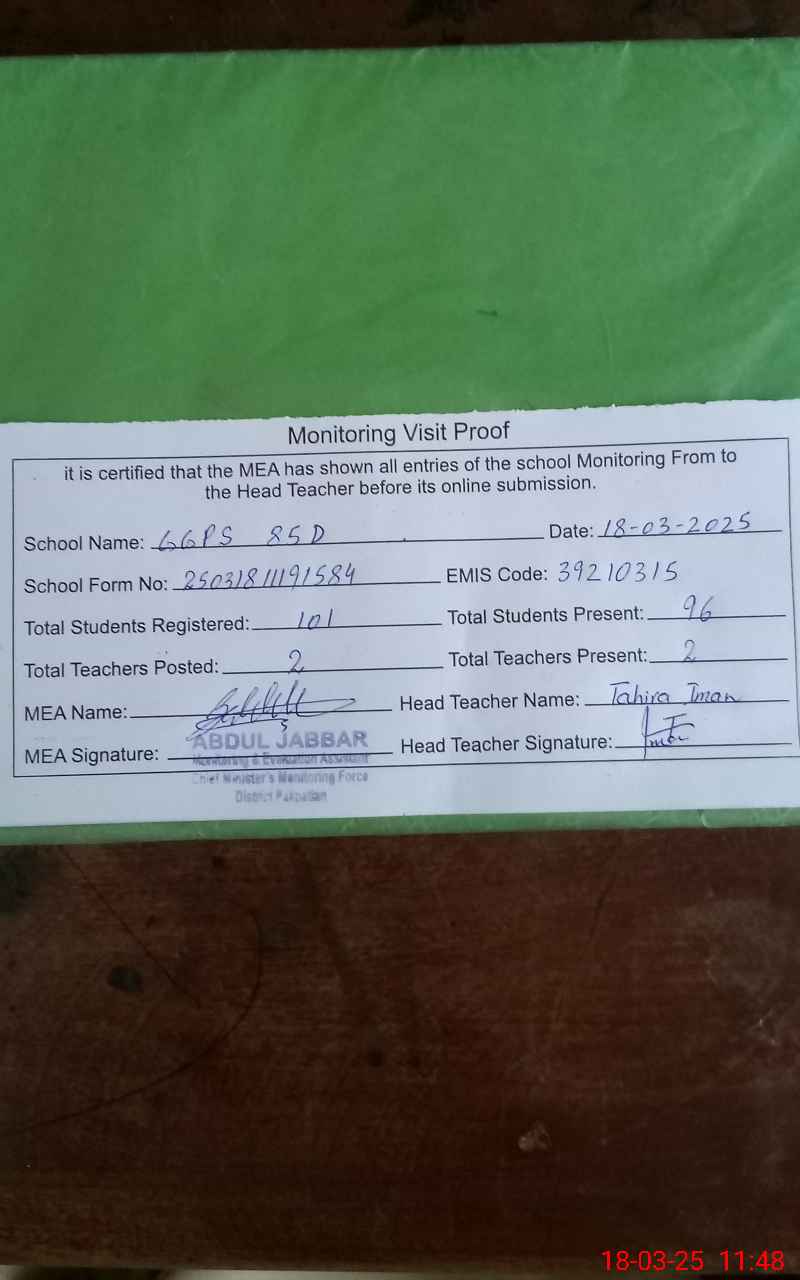 Monitoring Visit Proof
it is certified that the MEA has shown all entries of the school Monitoring From to
the Head Teacher before its online submission.
School Name: GGPS 85D Date: 18-03-2025
School Form No: 25031811191584 EMIS Code: 39210315
Total Students Registered: 101 Total Students Present: 96
Total Teachers Posted: 2 Total Teachers Present: 2
MEA Name: Head Teacher Name: Tahira Iman
MEA Signature: Head Teacher Signature:
ABDUL JABBAR
Monitoring & Evaluation Assistant
Chief Minister's Monitoring Force
District Pakpattan
18-03-25 11:48